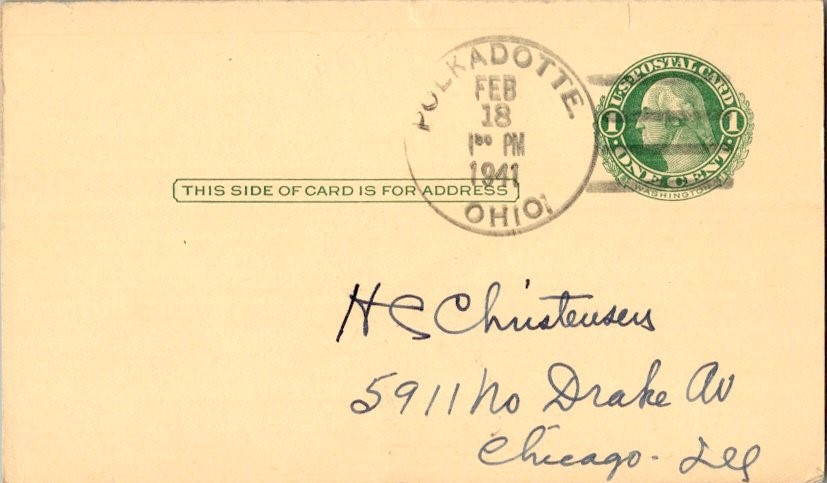 POLKADOTTE.
FEB
18
1⁰⁰ PM
1941
OHIO
U.S. POSTAL CARD
1 1
ONE CENT
WASHINGTON
THIS SIDE OF CARD IS FOR ADDRESS
H C Christensen
5911 No Drake Av
Chicago - Ill